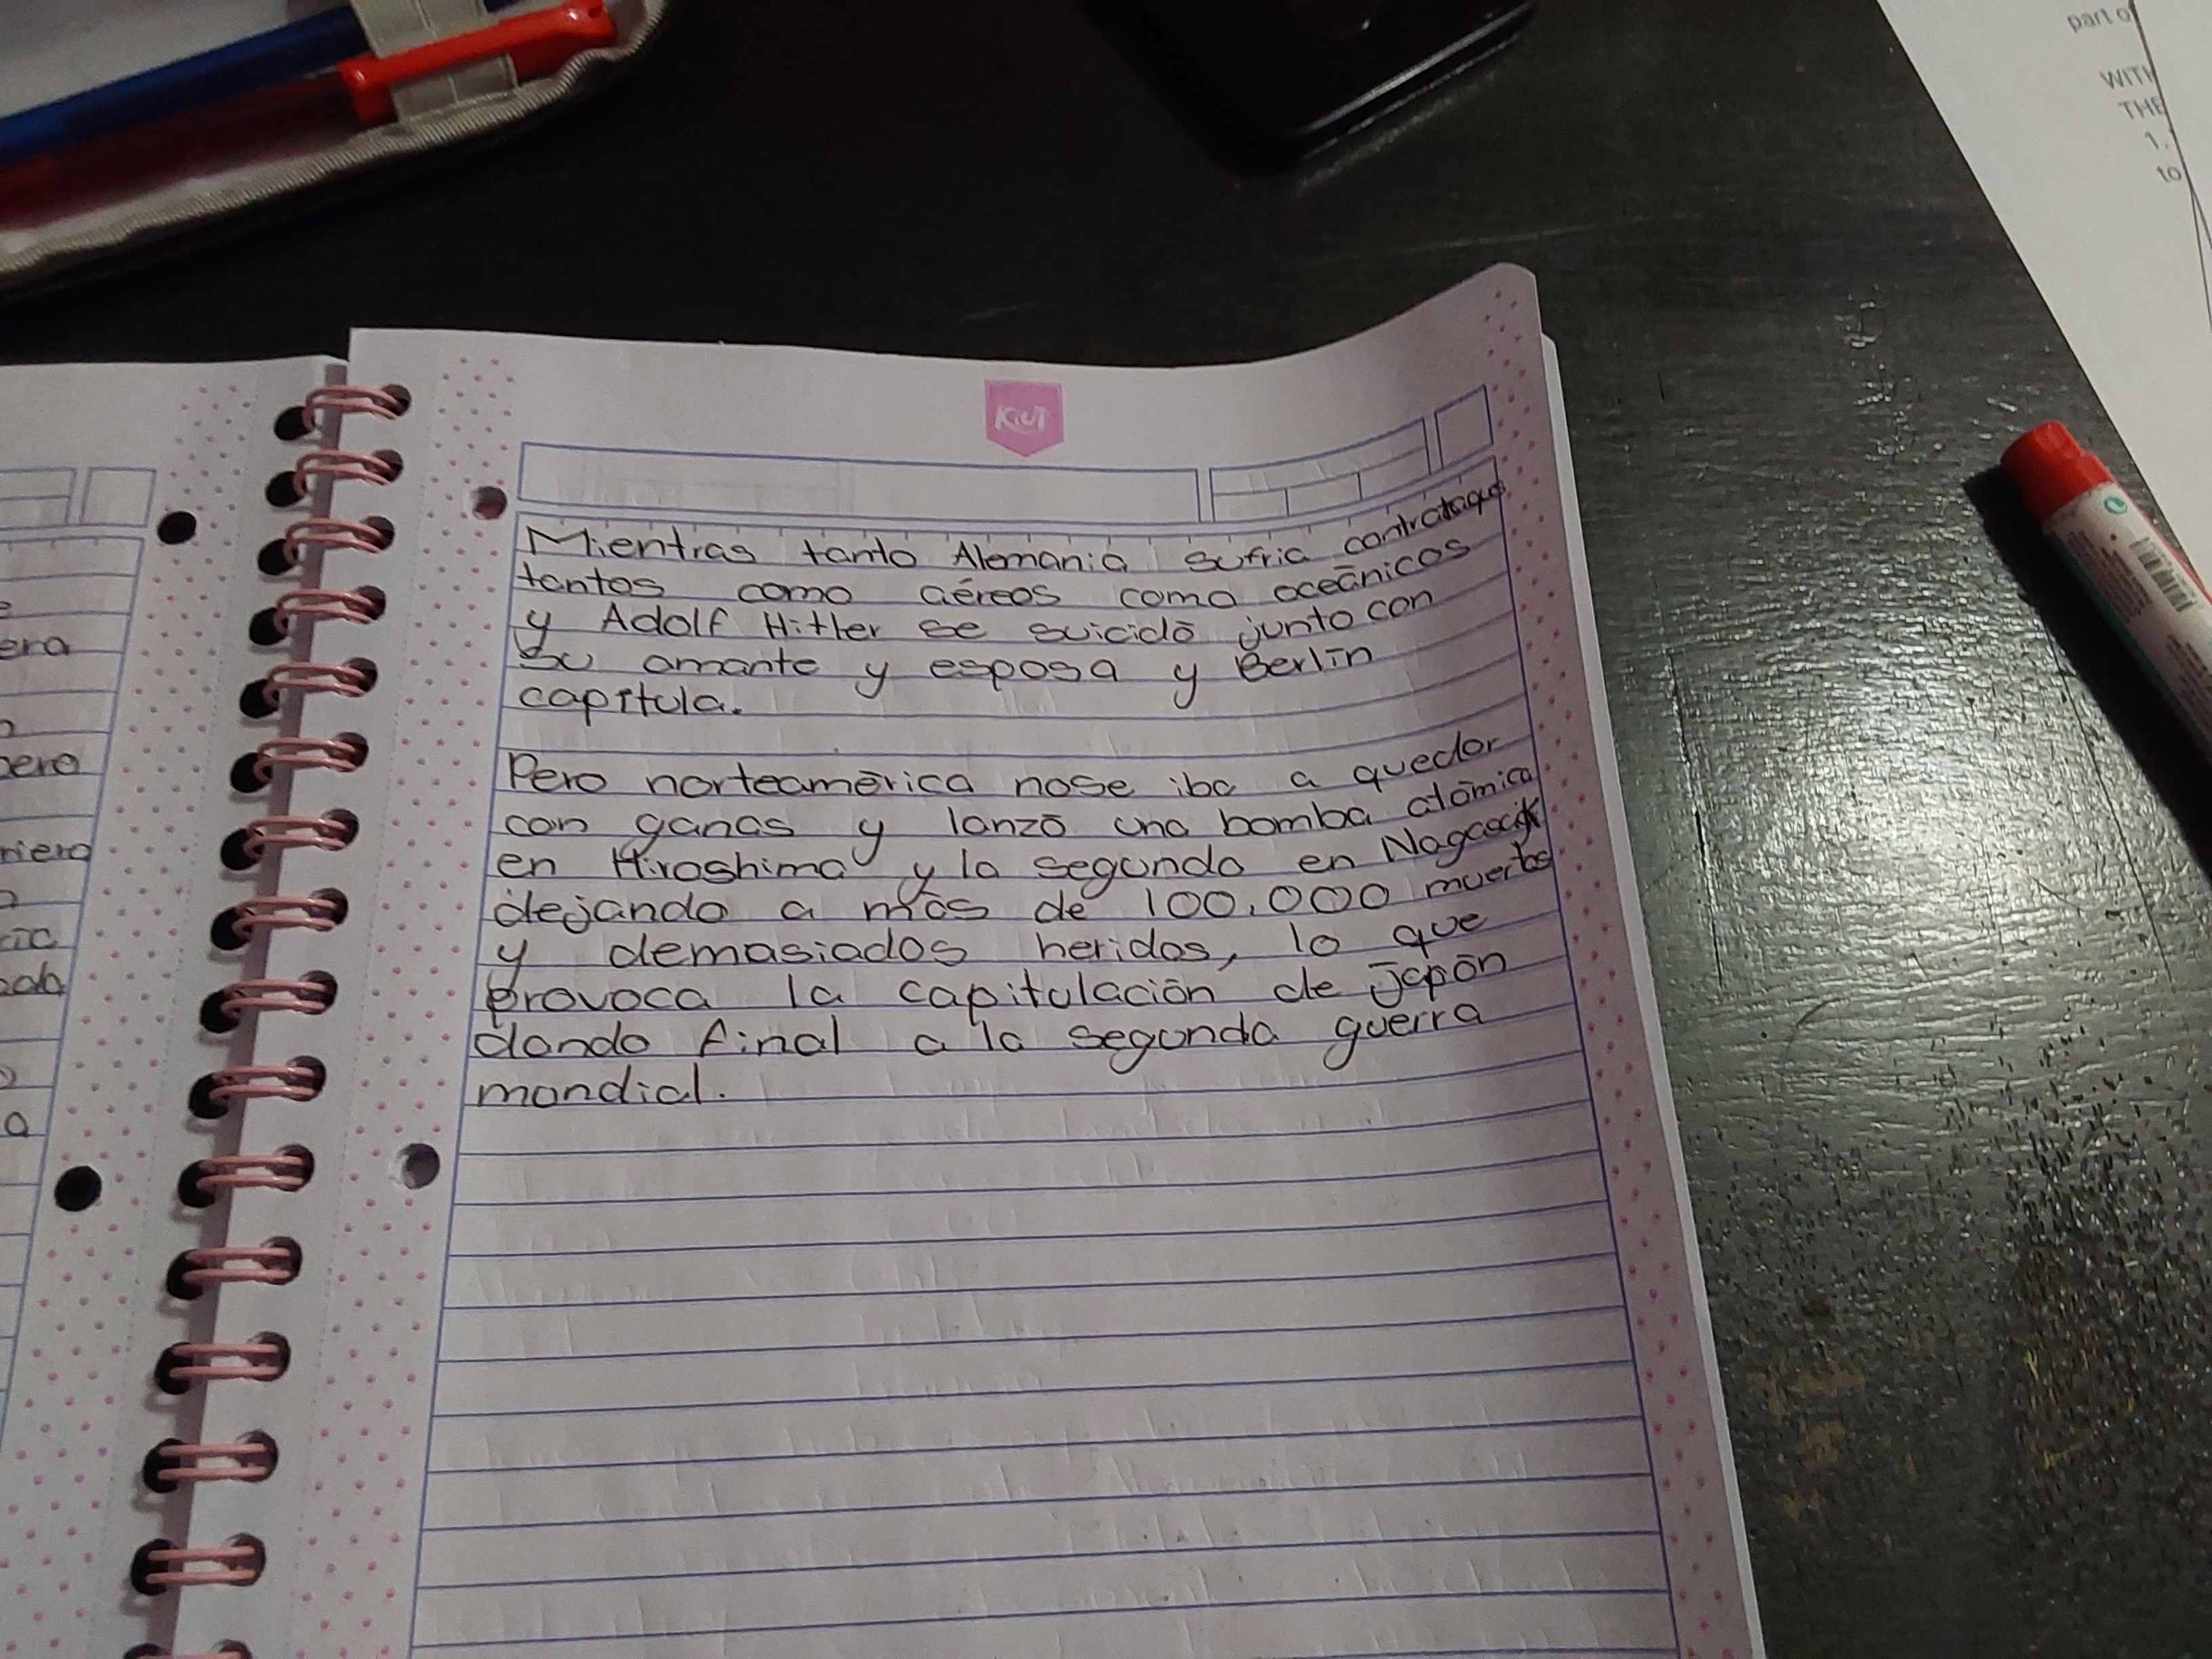 part o
WITH
THE
1.
to
KIUT
Mientras tanto Alemania sufria contrataque
tantos como aéreos como oceánicos
y Adolf Hitler se suicidó junto con
su amante y esposa y Berlín
capítula.
Pero norteamérica nose iba a quedar
con ganas y lanzó una bomba atómica
en Hiroshima y la segunda en
dejando a más de 100.000 muertos
y demasiados heridos, lo que
provoca la capitulación de Japón
dando final a la segunda guerra
mondial.
era
pero
a